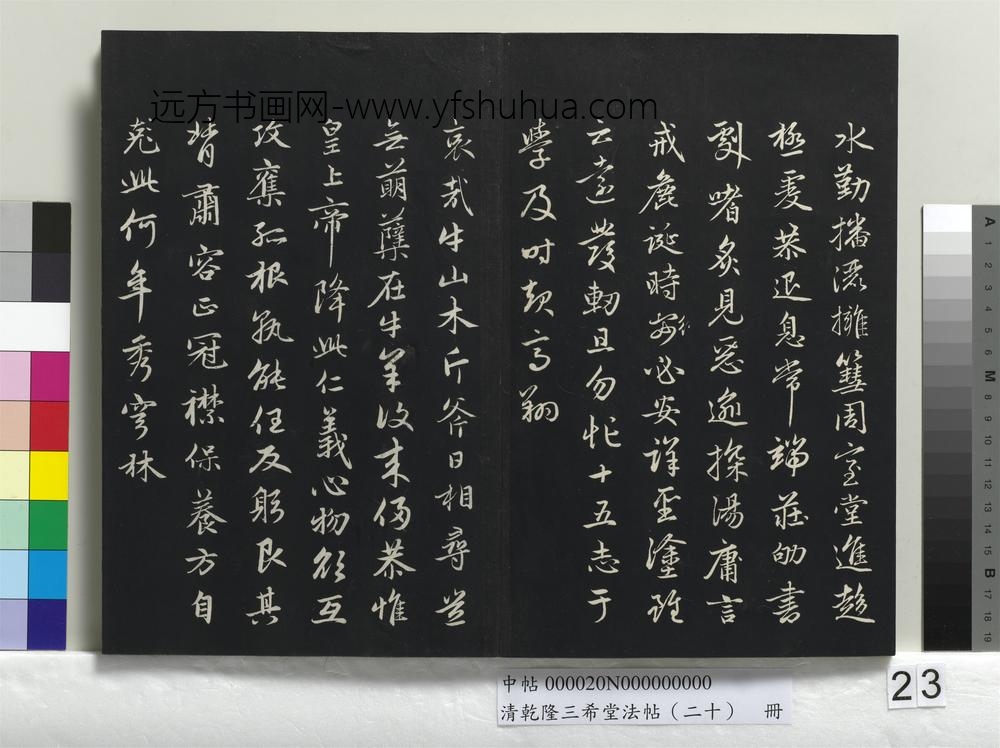 水勤播洒擁篲周室堂進趍
極虔恭退息常端莊劬書
劇嗜炙見惡逾探湯庸言
戒麁誕時行必安詳聖塗雖
云遠發軔且勿忙十五志于
學及时起高翔
哀哉牛山木斤斧日相尋豈
無萌蘖在牛羊復來侵恭惟
皇上帝降此仁義心物欲互
攻奪孤根孰能任反躬艮其
背肅容正冠襟保養方自
此何年秀穹林
远方书画网-www.yfshuhua.com
中帖 000020N000000000
清乾隆三希堂法帖（二十） 冊
23
A 1 2 3 4 5 6 M 8 9 10 11 12 13 14 15 B 17 18 19